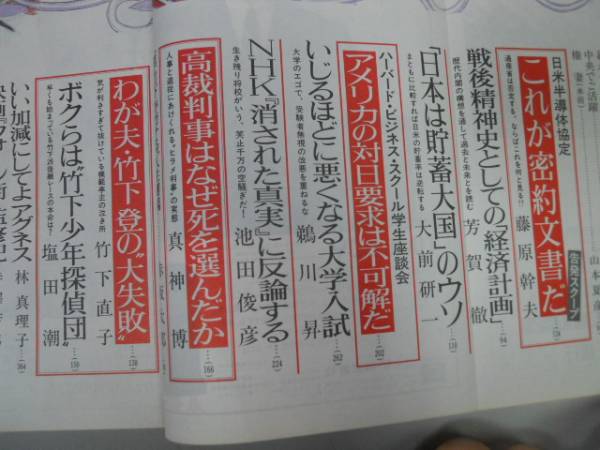 中央でご活躍
権 妻
山本夏彦
告発スクープ
日米半導体協定
これが密約文書だ
藤原幹夫
戦後精神史としての「経済計画」
歴代内閣の構想を通して過去と未来とを読む
芳賀 徹
(94)
「日本は貯蓄大国」のウソ
まともに比較すれば日米の貯蓄率は逆転する
大前研一
ハーバード・ビジネス・スクール学生座談会
アメリカの対日要求は不可解だ
(202)
いじるほどに悪くなる大学入試
大学のエゴで、受験者無視の改悪を重ねるな
鵜川 昇
(262)
NHK『消された真実』に反論する
生き残り将校がいう、笑止千万の空騒ぎだ!
池田俊彦
(224)
高裁判事はなぜ死を選んだか
人事と退役にあけくれる“ヒラメ判事”の実態
真神 博
(166)
わが夫・竹下登の“大失敗”
気が利きすぎて抜けている横範亭主の泣き所
竹下直子
(130)
ボクらは“竹下少年探偵団”
早くも始まっている竹下派後継レースの本命は!
塩田 潮
(150)
いい加減にしてよアグネス
林 真理子
(304)